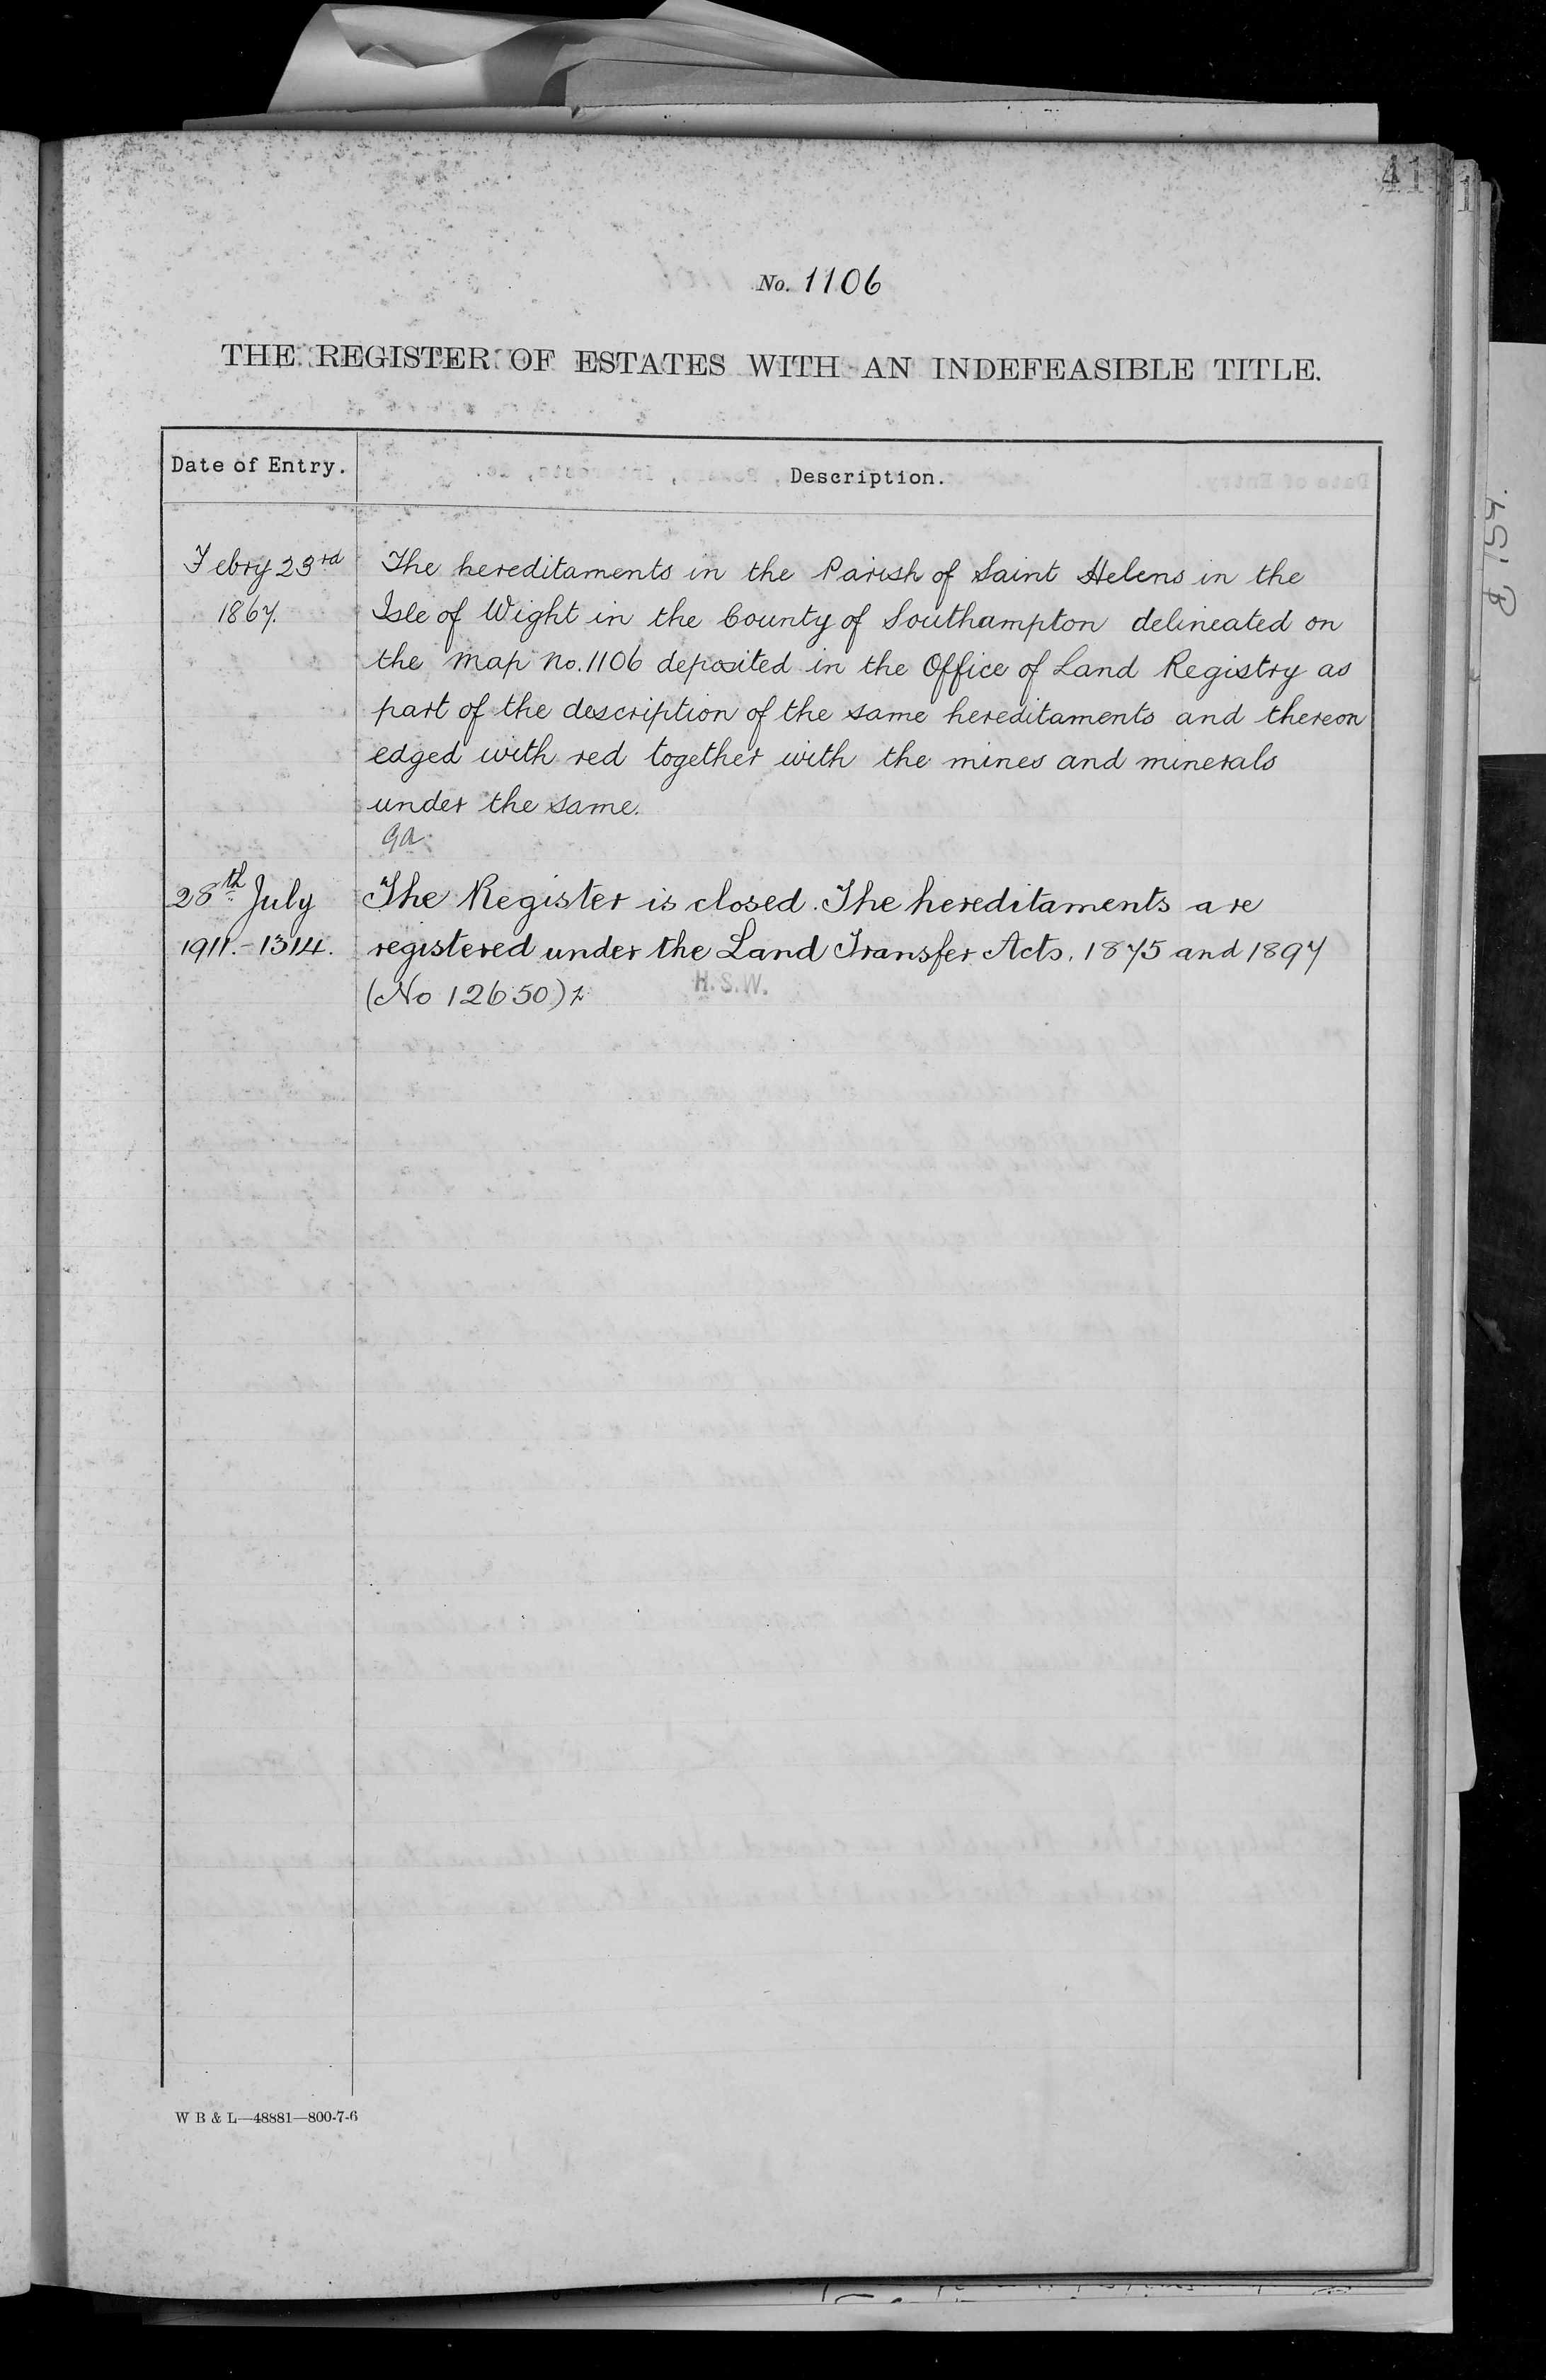 41
No. 1106
THE REGISTER OF ESTATES WITH AN INDEFEASIBLE TITLE.
Date of Entry.
Description.
Febry 23rd
1867.
The hereditaments in the Parish of Saint Helens in the
Isle of Wight in the County of Southampton delineated on
the map no. 1106 deposited in the Office of Land Registry as
part of the description of the same hereditaments and thereon
edged with red together with the mines and minerals
under the same.
28th July
1911.-1314.
The Register is closed. The hereditaments are
registered under the Land Transfer Acts, 1875 and 1897
(No 12650)
H.S.W.
W B & L—48881—800-7-6